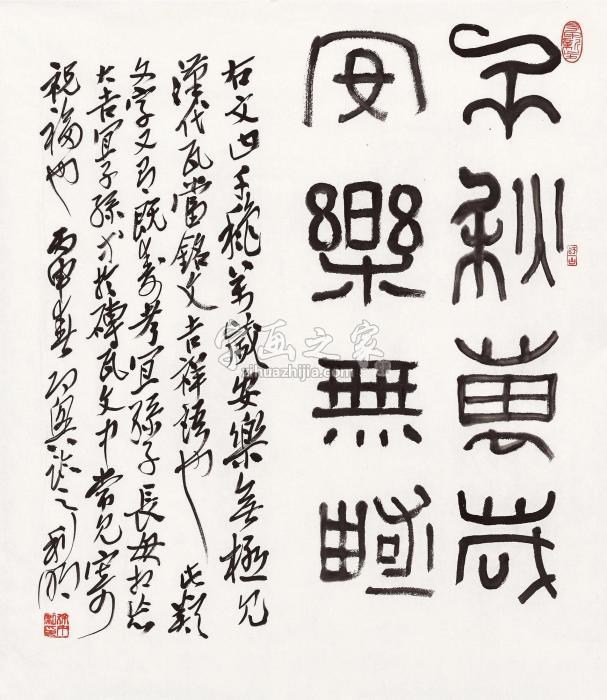 千秋萬歲
安樂無極
右文曰千秋萬歲安樂無極見
漢代瓦當銘文吉祥語也此類
文字又有既壽考宜孫子長毋相忘
大吉宜子孫於磚瓦文中常見寓
祝福也 丙申春
字画之家
zihuazhijia.com